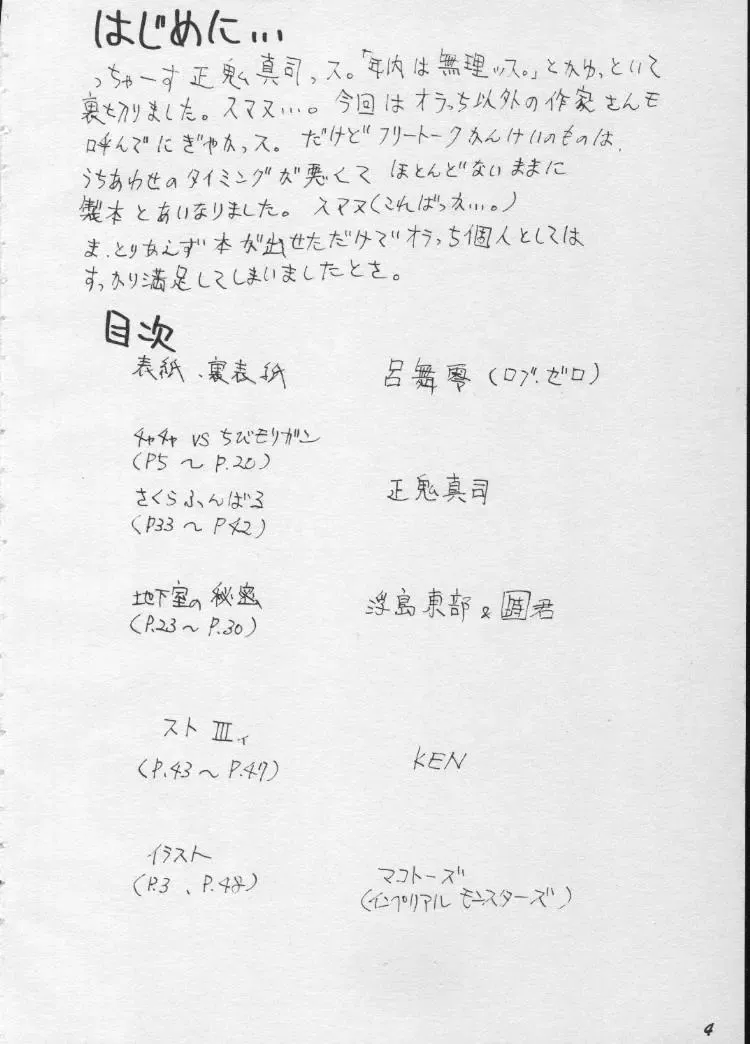 はじめに…
っちゃーす 正鬼真司っス。「年内は無理ッス。」とかゆっといて
裏も刀りました。スマヌ…。今回はオラっち以外の作家さんモ
呼んでにぎやかっス。だけどフリートークかんけいのものは、
うちあわせのタイミングが悪くて ほとんどないままに
製本とあいなりました。スマヌ(こればっか…。)
ま、とりあえず本が出せただけでオラっち個人としては
すっかり満足してしまいましたとさ。
目次
表紙、裏表紙 呂舞零(ロブ・ゼロ)
チャチャ VS ちびモリガン
(P5 〜 P.20)
さくらふんばる 正鬼真司
(P33 〜 P42)
地下室の秘密 浮島東部 & 時君
(P.23 〜 P.30)
スト III.ィ
(P.43 〜 P.47) KEN
イラスト
(P.3 、P.48) マコトーズ
(インペリアル モンスターズ)
4